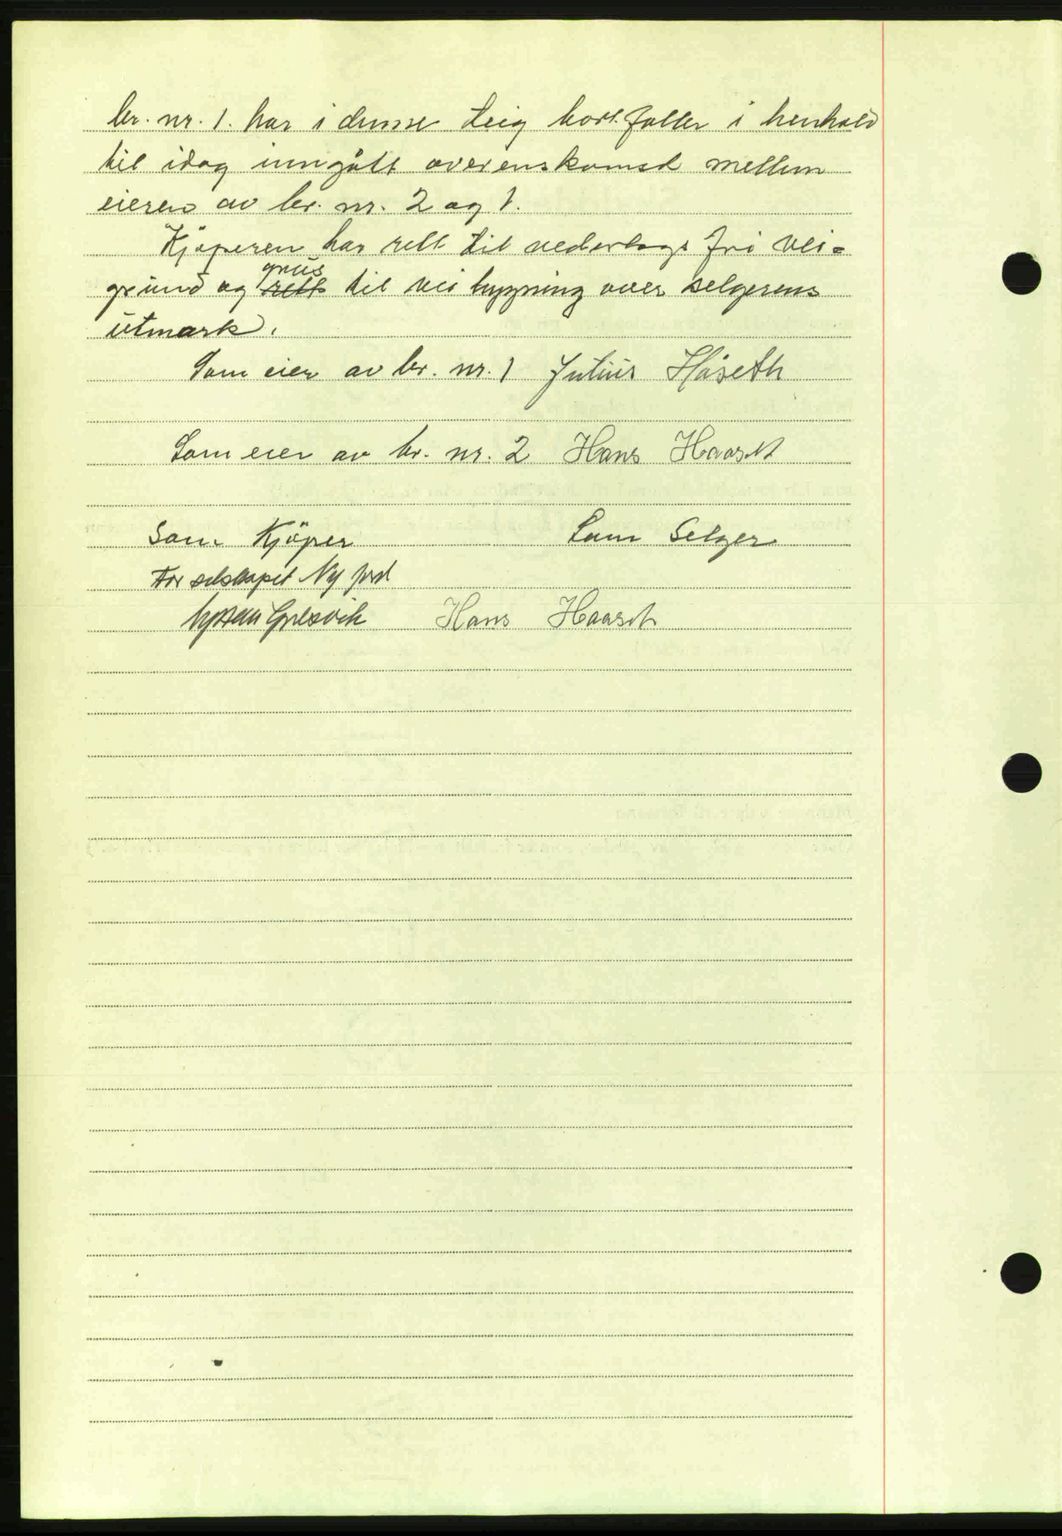 br. nr. 1. har i denne teig bortfaller i henhold
til idag inngått overenskomst mellem
eieren av br. nr. 2 og 1.
Kjøperen har rett til vederlags fri vei=
grunn og ~~rett~~ grus til vei bygning over selgerens
utmark.
Som eier av br. nr. 1 Julius Håseth
Som eier av br. nr. 2 Hans Haaset
Som Kjöper Som Selger
For selskapet Ny jord
Hans Haaset